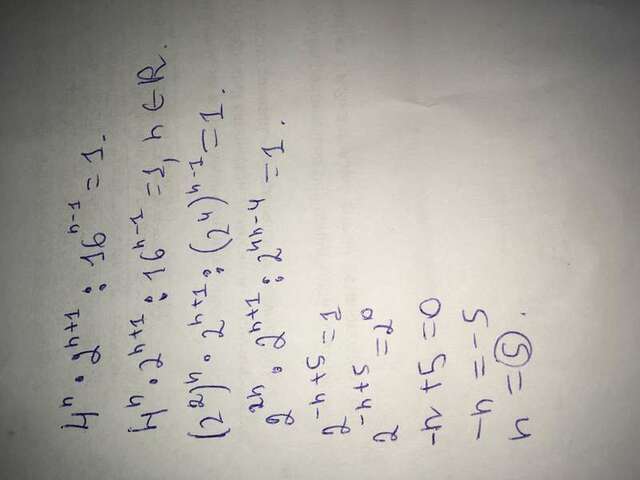 4ⁿ · 2ⁿ⁺¹ : 16ⁿ⁻¹ = 1.
4ⁿ · 2ⁿ⁺¹ : 16ⁿ⁻¹ = 1, n ∈ R.
(2²)ⁿ · 2ⁿ⁺¹ : (2⁴)ⁿ⁻¹ = 1.
2²ⁿ · 2ⁿ⁺¹ : 2⁴ⁿ⁻⁴ = 1.
2⁻ⁿ⁺⁵ = 1
2⁻ⁿ⁺⁵ = 2⁰
-n + 5 = 0
-n = -5
n = 5.